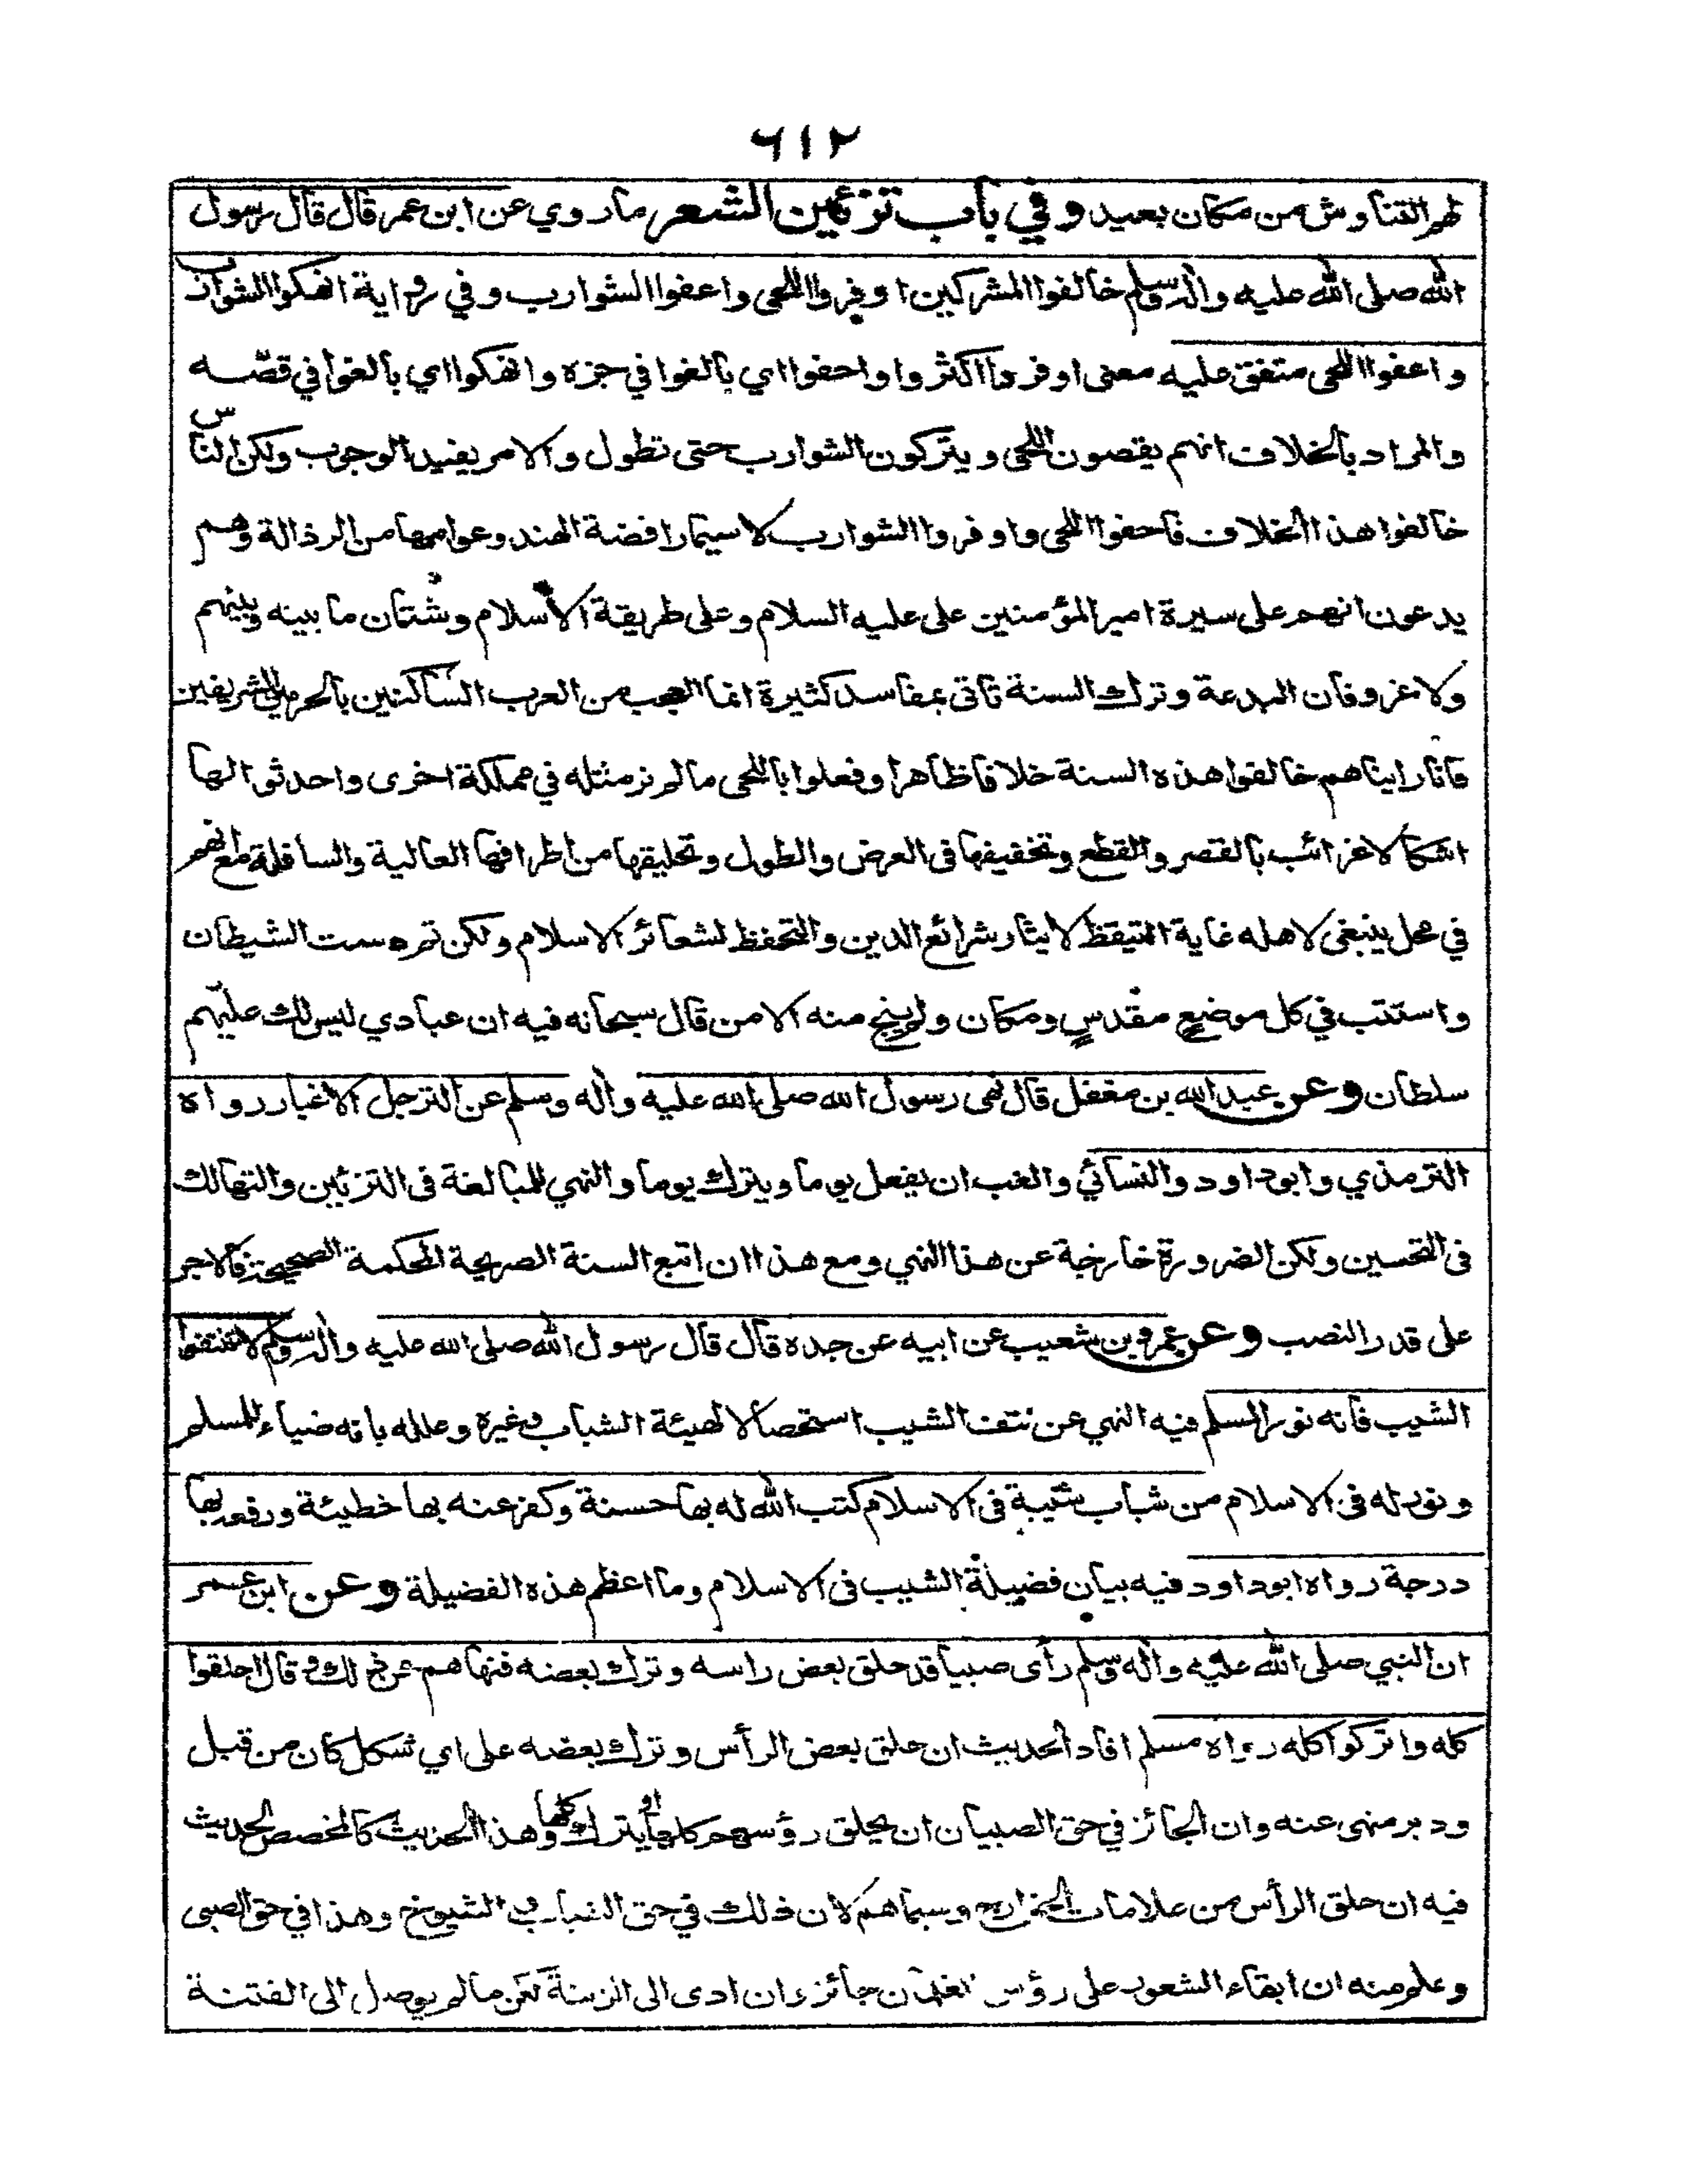 ٦١٢
لهم التناوش من مكان بعيد وفي باب تزئين الشعر ما روي عن ابن عمر قال قال رسول
الله صلى الله عليه واله وسلم خالفوا المشركين اوفروا اللحى واعفوا الشوارب وفي رواية انهكوا الشوارب
واعفوا اللحى متفق عليه معنى اوفروا اكثروا واحفوا اي بالغوا في جزه وانهكوا اي بالغوا في قصّه
والمراد بالخلاف انهم يقصون اللحى ويتركون الشوارب حتى تطول والامر يفيد الوجوب ولكن الناس
خالفوا هذا الخلاف فاحفوا اللحى واوفروا الشوارب لا سيما رافضة الهند وعوامها من الرذالة وهم
يدعون انهم على سيرة امير المؤمنين على عليه السلام وعلى طريقة الاسلام وشتان ما بينه وبينهم
ولا غرو فان البدعة وترك السنة تاتى بمفاسد كثيرة انما العجب من العرب الساكنين بالحرمين الشريفين
فانا راينا هم خالفوا هذه السنة خلافا ظاهرا وفعلوا باللحى ما لم نر مثله في مملكة اخرى واحدثوا لها
اشكالا غرائب بالقصر والقطع وتخفيفها فى العرض والطول وتحليقها من اطرافها العالية والسافلة مع انهم
في محل ينبغى لاهله غاية التيقظ لايثار شرائع الدين والتحفظ لشعائر الاسلام ولكن تمره ست الشيطان
واستتب في كل موضع مقدس ومكان ولم ينج منه الا من قال سبحانه فيه ان عبادي ليس لك عليهم
سلطان وعن عبد الله بن مغفل قال نهى رسول الله صلى الله عليه واله وسلم عن الترجل الا غبا رواه
الترمذي وابو داود والنسائي والغب ان يفعل يوما ويترك يوما والنهي للمبالغة فى التزئين والتهالك
فى التحسين ولكن الضرورة خارجة عن هذا النهي ومع هذا ان اتبع السنة الصريحة المحكمة الصحيحة فالاجر
على قدر النصب وعن عمرو بن شعيب عن ابيه عن جده قال قال رسول الله صلى الله عليه واله وسلم لا تنتفوا
الشيب فانه نور المسلم فيه النهي عن نتف الشيب استحصالا لهيئة الشباب وغيره وعلله بانه ضياء للمسلم
ونور له فى الاسلام من شاب شيبة فى الاسلام كتب الله له بها حسنة وكفر عنه بها خطيئة ورفعه بها
درجة رواه ابو داود فيه بيان فضيلة الشيب فى الاسلام وما اعظم هذه الفضيلة وعن ابن عمر
ان النبي صلى الله عليه واله وسلم رأى صبيا قد حلق بعض راسه وترك بعضه فنهاهم عن ذلك وقال احلقوا
كله واتركوا كله رواه مسلم افاد الحديث ان حلق بعض الرأس وترك بعضه على اي شكل كان من قبل
ودبر منهى عنه وان الجائز في حق الصبيان ان يحلق رؤسهم كلها او يترك كلها وهذا الحديث كالمخصص لحديث
فيه ان حلق الرأس من علامات الخوارج وسيماهم لان ذلك في حق الشباب والشيوخ وهذا في حق الصبى
وعلم منه ان ابقاء الشعور على رؤس الغلمان جائز وان ادى الى الزينة لكن ما لم يوصل الى الفتنة